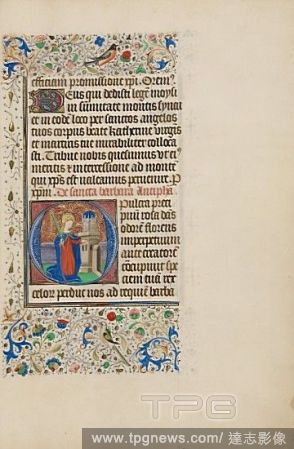 efficiam promissione xpi. Orem⁹
Deus qui dedisti legē moysi
in summitate montis synai
et in eodē loco per sanctos angelos
tuos corpus beate katherine virgis
et martiris tue mirabiliter colloca
sti. Tribue nobis quesumus ut ei⁹
meritis et intercessione ad monte
qui xp̄s est valeamus pervenire. P
De sancta barbara Antipha
Pulcra pre
rosa dās
odorē florens
imperpetuum
ante creatorē
celor perduc nos ad requiē barba
TPG
www.tpgnews.com/ 達志影像